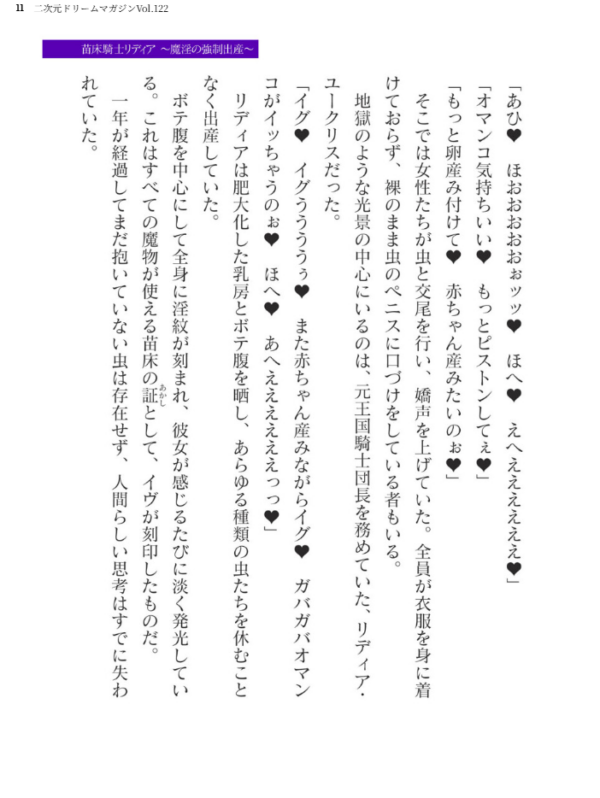 11 二次元ドリームマガジンVol.122
苗床騎士リディア ～魔淫の強制出産～
「あひ♥　ほおおおおおぉッッ♥　ほへ♥　えへええええええ♥」
「オマンコ気持ちいい♥　もっとピストンしてぇ♥」
「もっと卵産み付けて♥　赤ちゃん産みたいのぉ♥」
そこでは女性たちが虫と交尾を行い、嬌声を上げていた。全員が衣服を身に着
けておらず、裸のまま虫のペニスに口づけをしている者もいる。
地獄のような光景の中心にいるのは、元王国騎士団長を務めていた、リディア・
ユークリスだった。
「イグ♥　イグうううぅ♥　また赤ちゃん産みながらイグ♥　ガバガバオマン
コがイッちゃうのぉ♥　ほへ♥　あへええええええっっ♥」
リディアは肥大化した乳房とボテ腹を晒し、あらゆる種類の虫たちを休むこと
なく出産していた。
ボテ腹を中心にして全身に淫紋が刻まれ、彼女が感じるたびに淡く発光してい
る。これはすべての魔物が使える苗床の証あかしとして、イヴが刻印したものだ。
一年が経過してまだ抱いていない虫は存在せず、人間らしい思考はすでに失わ
れていた。